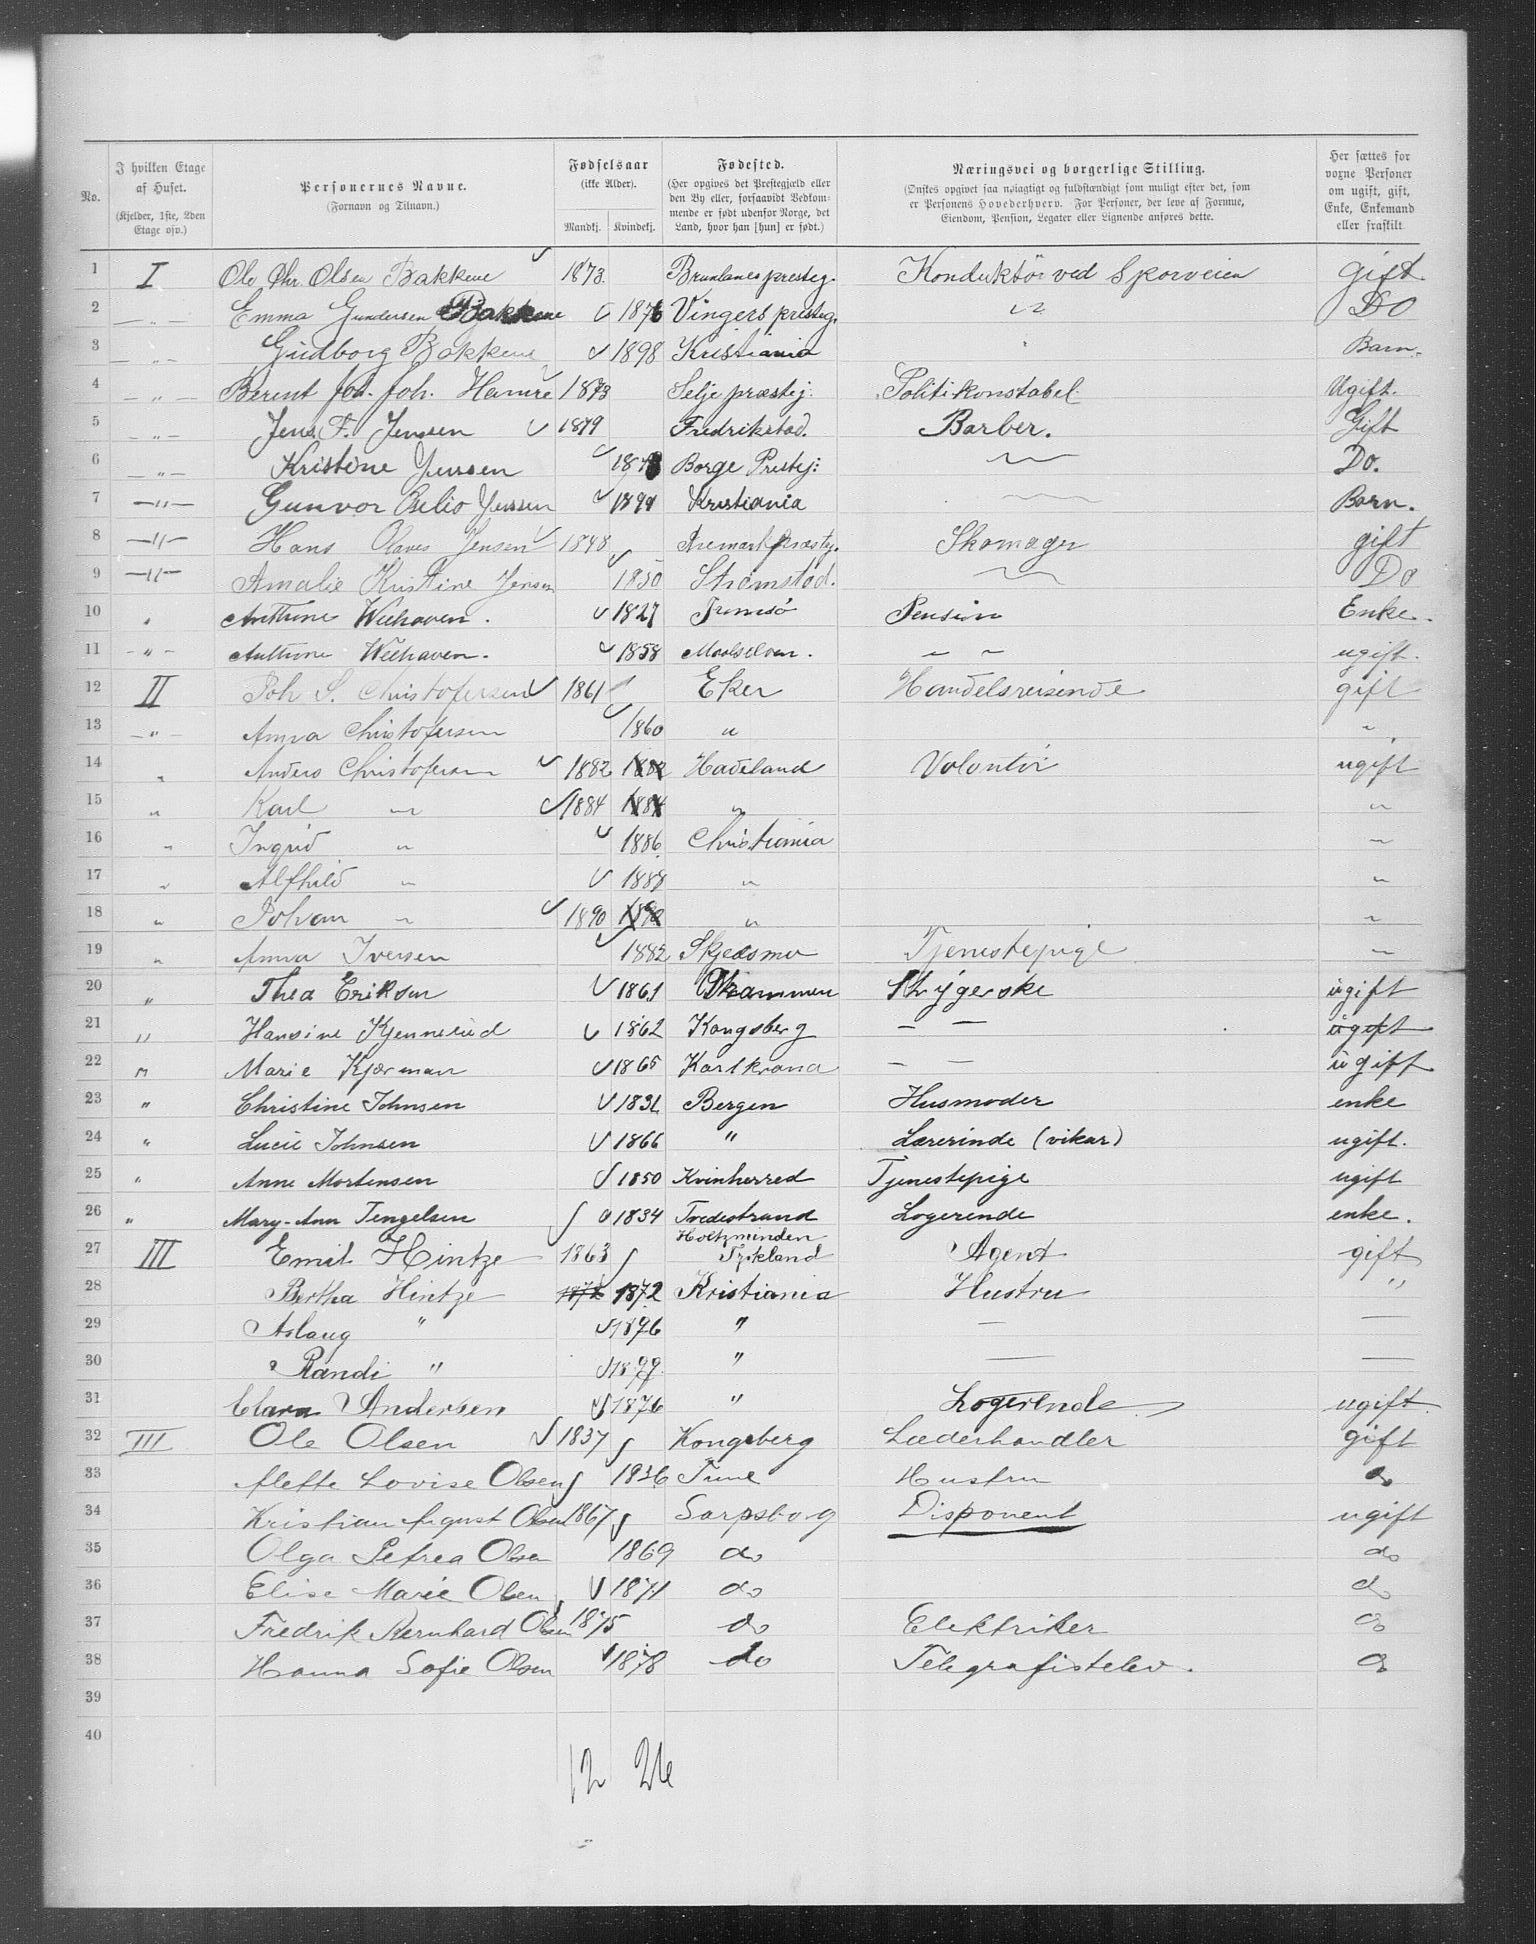 No.
I hvilken Etage af Huset. (Kjelder, 1ste, 2den Etage osv.)
Personernes Navne. (Fornavn og Tilnavn.)
Fødselsaar (ikke Alder). Mandkj. Kvindekj.
Fødested. (Her opgives det Prestegjæld eller den By eller, forsaavidt Vedkommende er født udenfor Norge, det Land, hvor han [hun] er født.)
Næringsvei og borgerlige Stilling. (Ønskes opgivet saa nøiagtigt og fuldstændigt som muligt efter det, som er Personens Hovederhverv. For Personer, der leve af Formue, Eiendom, Pension, Legater eller Lignende anføres dette.
Her sættes for voxne Personer om ugift, gift, Enke, Enkemand eller fraskilt
1 I Ole Chr. Olsen Bakkene 1873. Brunlanes presteg. Konduktör ved Sporveien gift
2 — „ — Emma Gundersen Bakkene 1876 Vingers presteg. Do
3 — „ — Gudborg Bakkene 1898 Kristiania Barn.
4 — „ — Berent Joh. Hamre 1873 Selje præstej. Politikonstabel Ugift.
5 — „ — Jens F. Jenssen 1879 Fredrikstad. Barber. Gift
6 — „ — Kristine Jenssen Borge Prestej: Do.
7 — „ — Gunvor Jenssen 1899 Kristiania Barn.
8 — „ — Hans Olaves Jensen 1848 Aremark præstg. Skomager gift
9 — „ — Amalie Kristine Jensen 1850 Strömstad. Do
10 „ Anthone Weehaven. 1827 Tromsö Pension Enke.
11 — „ — Anthone Weehaven. 1858 Maalselven. ugift.
12 II Joh S. Christofersen 1861 Eker Handelsreisende gift
13 — „ — Anna Christofersen 1860 „ „
14 „ Anders Christofersen 1882 1882 Hadeland Volontör ugift
15 „ Karl „ 1884 1884 „ „
16 „ Ingrid „ 1886 Christiania „
17 „ Alfhild „ 1888 „ „
18 „ Johan „ 1890 1890 „ „
19 „ Anna Iversen 1882 Skjedsmo Tjenestepige „
20 „ Thea Eriksen 1861 Drammen Strygerske ugift
21 „ Hansine Kjennerud 1862 Kongsberg — — ugift
22 „ Marie Kjærman 1865 Karlkrona — — ugift
23 „ Christine Johnsen 1831 Bergen Husmoder enke
24 „ Lucie Johnsen 1866 „ Lærerinde (vikar) ugift.
25 „ Anne Mortensen 1850 Kvinherred Tjenestepige ugift
26 „ Mary-Ann Tengelsen 1834 Tvedestrand Logerende enke.
27 III Emil Hintze 1863 Holtzminden Tyskland Agent gift
28 Bertha Hintze 1872 1872 Kristiania Hustru „
29 Aslaug „ 1896 „ — —
30 Randi „ 1899. „ — —
31 Clara Andersen 1876 „ Logerende ugift.
32 III Ole Olsen 1837 Kongsberg Læderhandler gift
33 Mette Lovise Olsen 1836 Tune Hustru do
34 Kristian August Olsen 1867 Sarpsborg Disponent ugift
35 Olga Petrea Olsen 1869 do do
36 Elise Marie Olsen 1871 do do
37 Fredrik Bernhard Olsen 1875 do Elektriker do
38 Hanna Sofie Olsen 1878 do Telegrafistelev. do
39
40
12 26